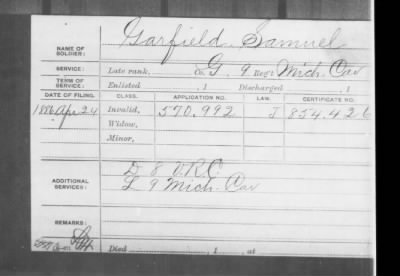 NAME OF SOLDIER: Garfield, Samuel
SERVICE: Late rank, Co. G, 9 Reg't Mich. Cav
TERM OF SERVICE: Enlisted , 1 Discharged , 1
DATE OF FILING. CLASS. APPLICATION NO. LAW. CERTIFICATE NO.
1886 Apr 24 Invalid, 570.992 J 854.426
Widow,
Minor,
ADDITIONAL SERVICES: D 8 V.R.C.
L 9 Mich. Cav
REMARKS:
Died , 1 , at